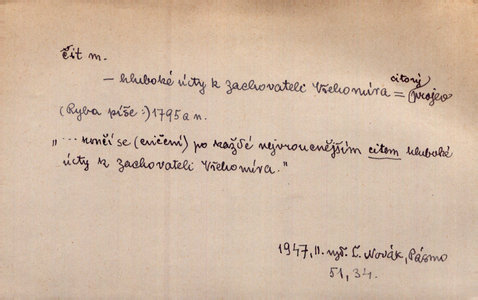 cit m.
citový
– hluboké úcty k zachovateli Všehomíra = (projev
(Ryba píše:) 1795 a n.
„... končí se (cvičení) po každé nejvroucnějším citem hluboké
úcty k zachovateli Všehomíra."
1947, II. vyd. L. Novák, Pásmo
51, 34.